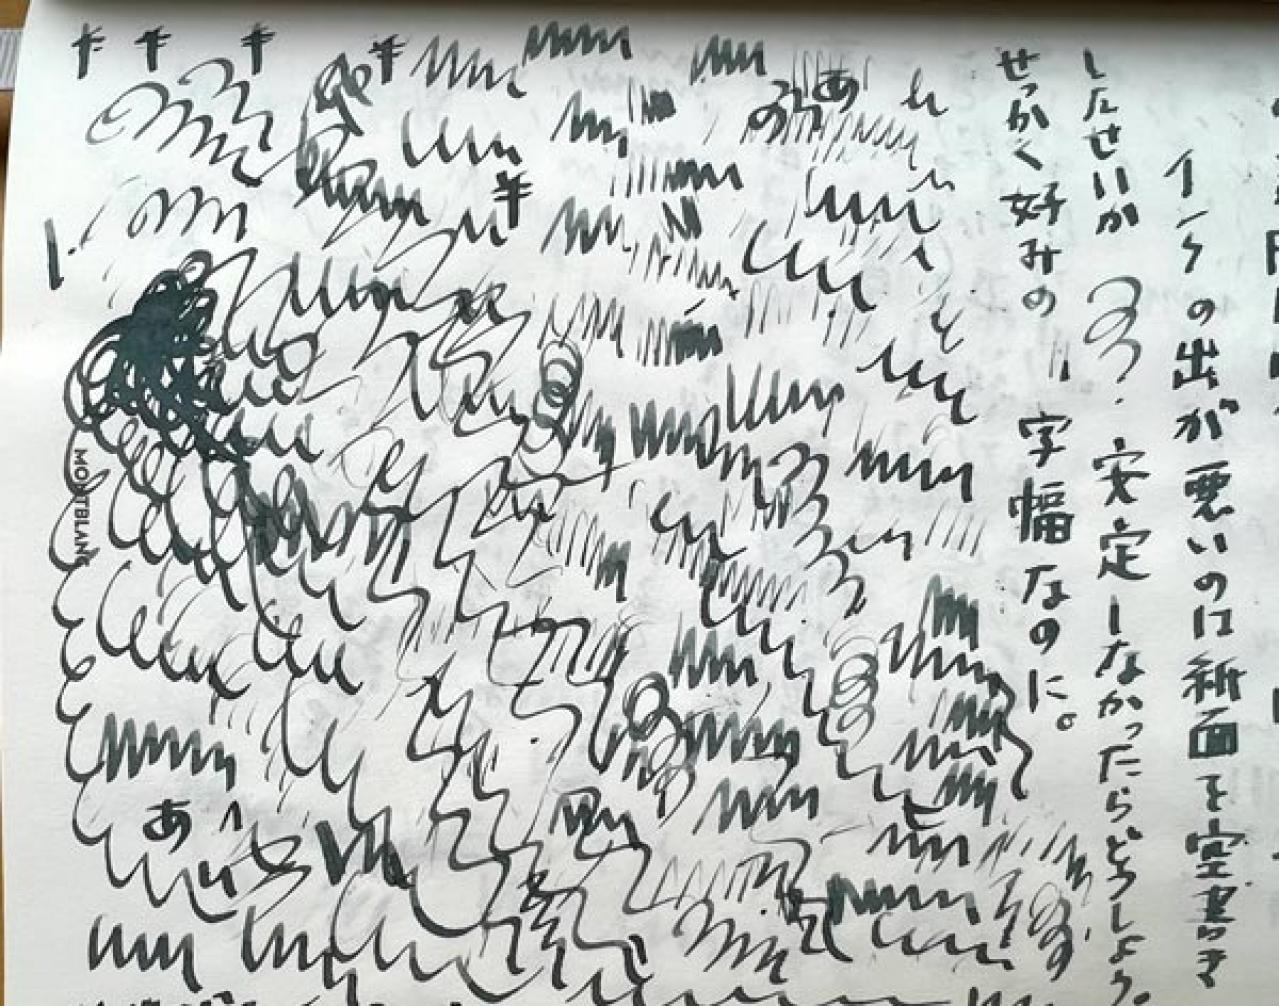 インクの出が悪いのは紙面を空書き
したせいか??安定しなかったらどうしよう。
せっかく好みの、字幅なのに。
あ
MONTBLANC
あ